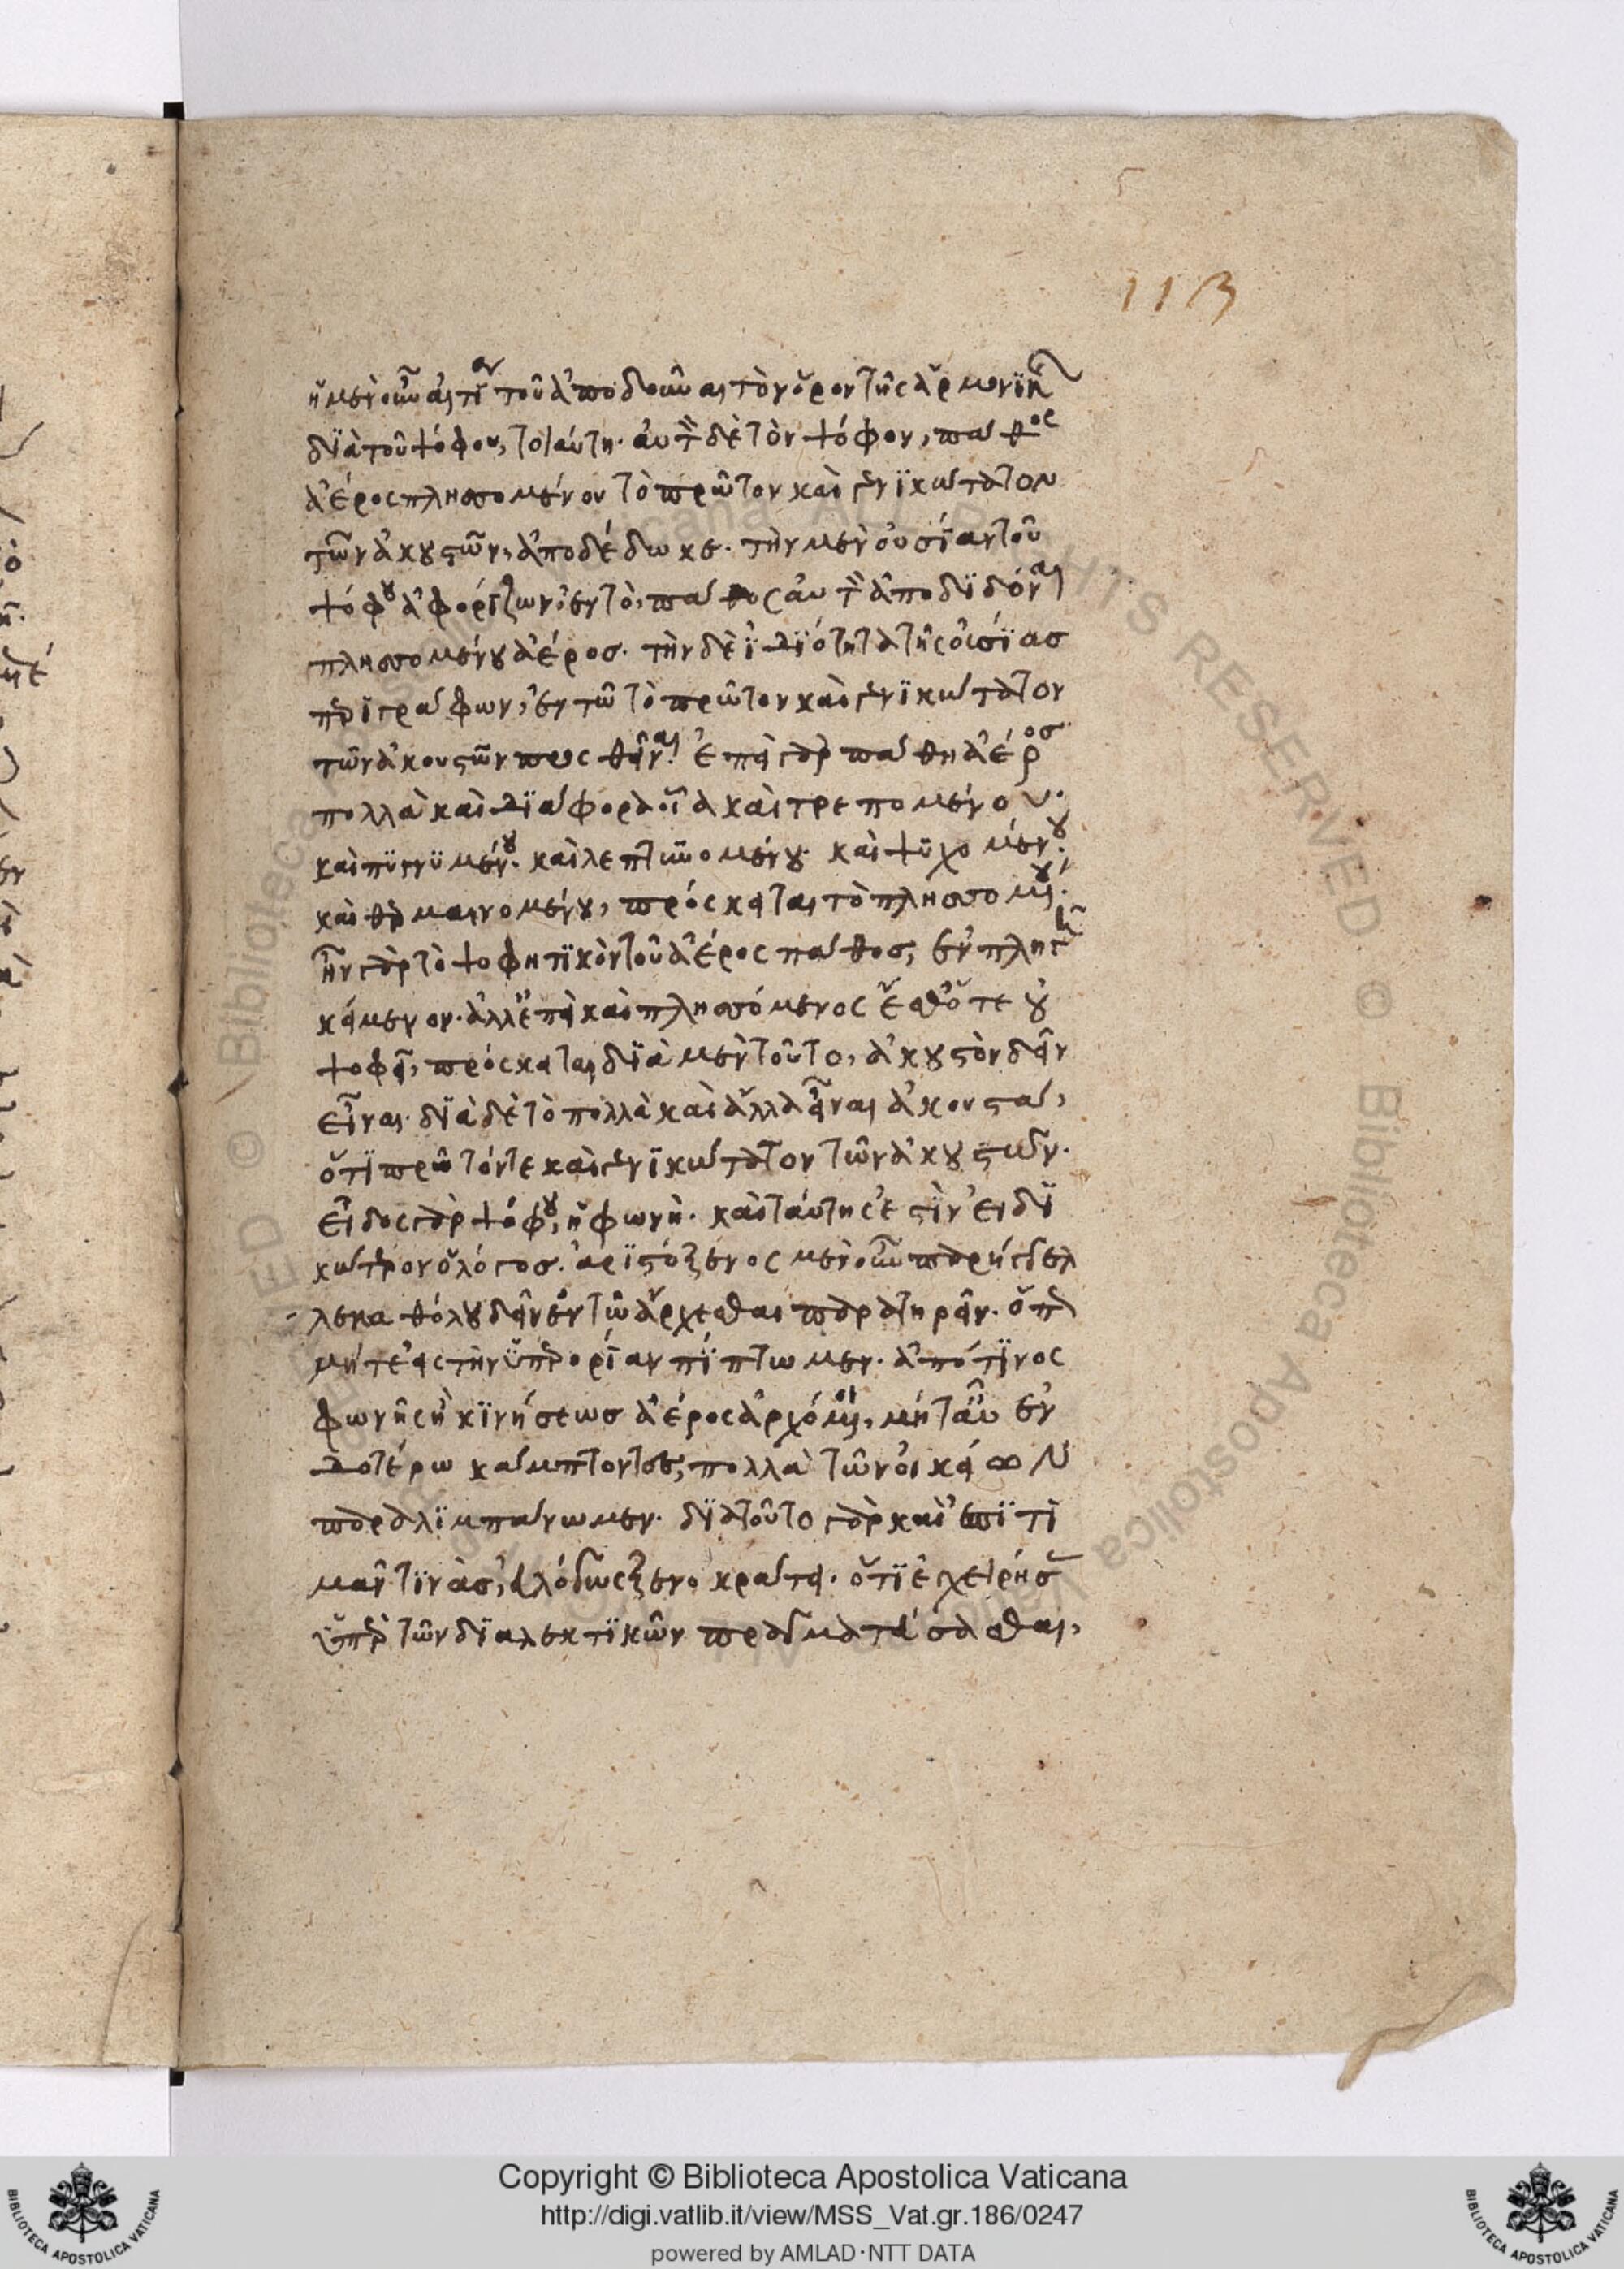 113
ἡ μὲν οὖν αἰτία τοῦ ἀποδοῦναι τὸν ὅρον τῆς ἁρμονικῆς
διὰ τοῦ ψόφου, τοιαύτη. αὐτὸν δὲ τὸν ψόφον, πάθος
ἀέρος πλησσομένου τὸ πρῶτον καὶ γενικώτατον
τῶν ἀκουστῶν, ἀποδέδωκε. τὴν μὲν οὐσίαν τοῦ
ψόφου ἀφορίζων, ἐν τὸ, πάθος αὐτὸν ἀποδιδόναι
πλησσομένου ἀέρος. τὴν δὲ ἰδιότητα τῆς οὐσίας
περιγράφων, ἐν τῶ τὸ πρῶτον καὶ γενικώτατον
τῶν ἀκουστῶν προσθεῖναι. ἐπεὶ γὰρ πάθη ἀέρος
πολλὰ καὶ διάφορα οἷα καὶ τρεπομένου.
καὶ πυγνυμένου. καὶ λεπτυνομένου. καὶ ψυχομένου.
καὶ θερμαινομένου, πρόσκειται τὸ πλησσομένου.
ἦν γὰρ τὸ ψοφητικὸν τοῦ ἀέρος πάθος, ἐν πληγῆ
κείμενον. ἀλλ' ἐπεὶ καὶ πλησσόμενος ἔσθ' ὅτε οὐ
ψοφεῖ, πρόσκειται διὰ μὲν τοῦτο, ἀκουστὸν δεῖν
εἶναι. διὰ δὲ τὸ πολλὰ καὶ ἄλλα εἶναι ἀκουστά,
ὅτι πρῶτόν τε καὶ γενικώτατον τῶν ἀκουστῶν.
εἶδος γὰρ ψόφου, ἡ φωνή. καὶ ταύτης ἐστὶν εἰδι
κώτερον ὁ λόγος. ἀριστόξενος μὲν οὖν παρήγγελ
λε καθόλου δεῖν ἐν τῶ ἄρχεσθαι παρατηρεῖν. ὅπως
μήτε εἰς τὴν ὑπερορίαν πίπτωμεν. ἀπό τινος
φωνῆς ἢ κινήσεως ἀέρος ἀρχόμενοι, μήτ' αὖ ἐν
δοτέρω κάμπτοντες, πολλὰ τῶν οἰκείων
παραλιμπάνωμεν. διὰ τοῦτο γὰρ καὶ ἐπιτι
μᾶν τινὰς, εὐλόγως ξενοκράτει. ὅτι ἐγχειρήσας
ὑπὲρ τῶν διαλεκτικῶν πραγματεύσασθαι,
Copyright © Biblioteca Apostolica Vaticana
http://digi.vatlib.it/view/MSS_Vat.gr.186/0247
powered by AMLAD·NTT DATA
BIBLIOTECA APOSTOLICA VATICANA
BIBLIOTECA APOSTOLICA VATICANA